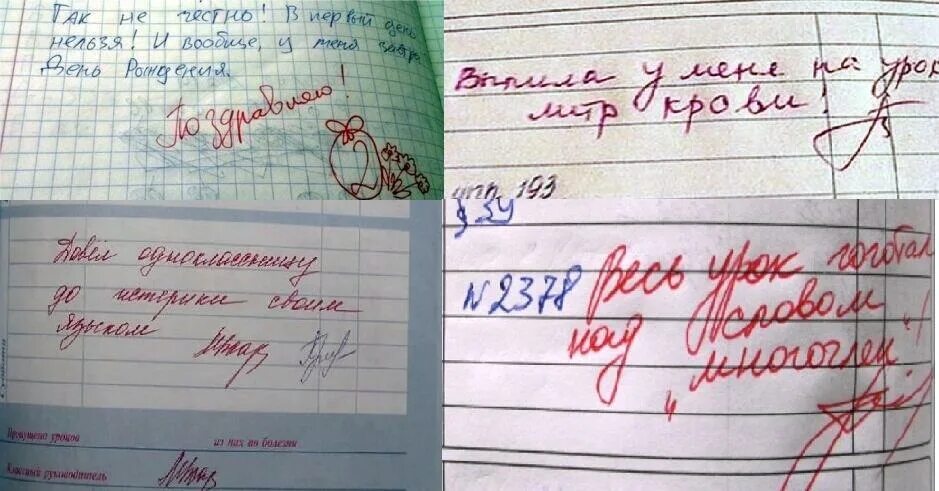 Так не честно! В первый день
нельзя! И вообще, у меня завтра
День Рождения.
Поздравляю!
2
Выпила у меня на урок
литр крови!
упп. 193
§ 34
№2378
Весь урок гоготал
над словом
"многочлен"!
Довёл одноклассницу
до истерики своим
языком
Пропущено уроков
из них по болезни
Классный руководитель